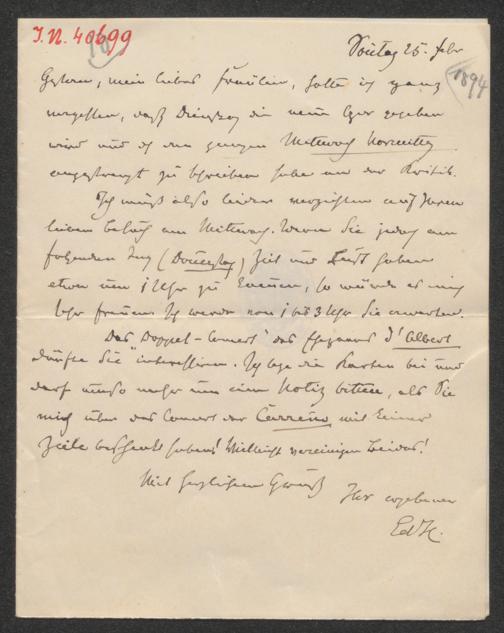 I.N. 40699
Sontag 25. Febr
1894
Gestern, mein liebes Fräulein, hatte ich ganz
vergessen, daß Dienstag die neue Oper gegeben
wird und ich den ganzen Mittwoch Vormittag
angestrengt zu schreiben habe an der Kritik.
Ich muß also leider verzichten auf Ihren
lieben Besuch am Mittwoch. Wenn Sie jedoch am
folgenden Tag (Donnerstag) Zeit und Lust haben
etwa um 1 Uhr zu kommen, so würde es mich
sehr freuen. Ich werde von 1 bis 3 Uhr Sie erwarten.
Das "Doppel-Concert" des Ehepaares d'Albert
dürfte Sie interessiren. Ich lege die Karten bei und
darf umso mehr um eine Notiz bitten, als Sie
mich über das Concert der Carreño mit keiner
Zeile beschenkt haben! Vielleicht vereinigen Sie Beides!
Mit herzlichem Gruß
Ihr ergebener
EdH.